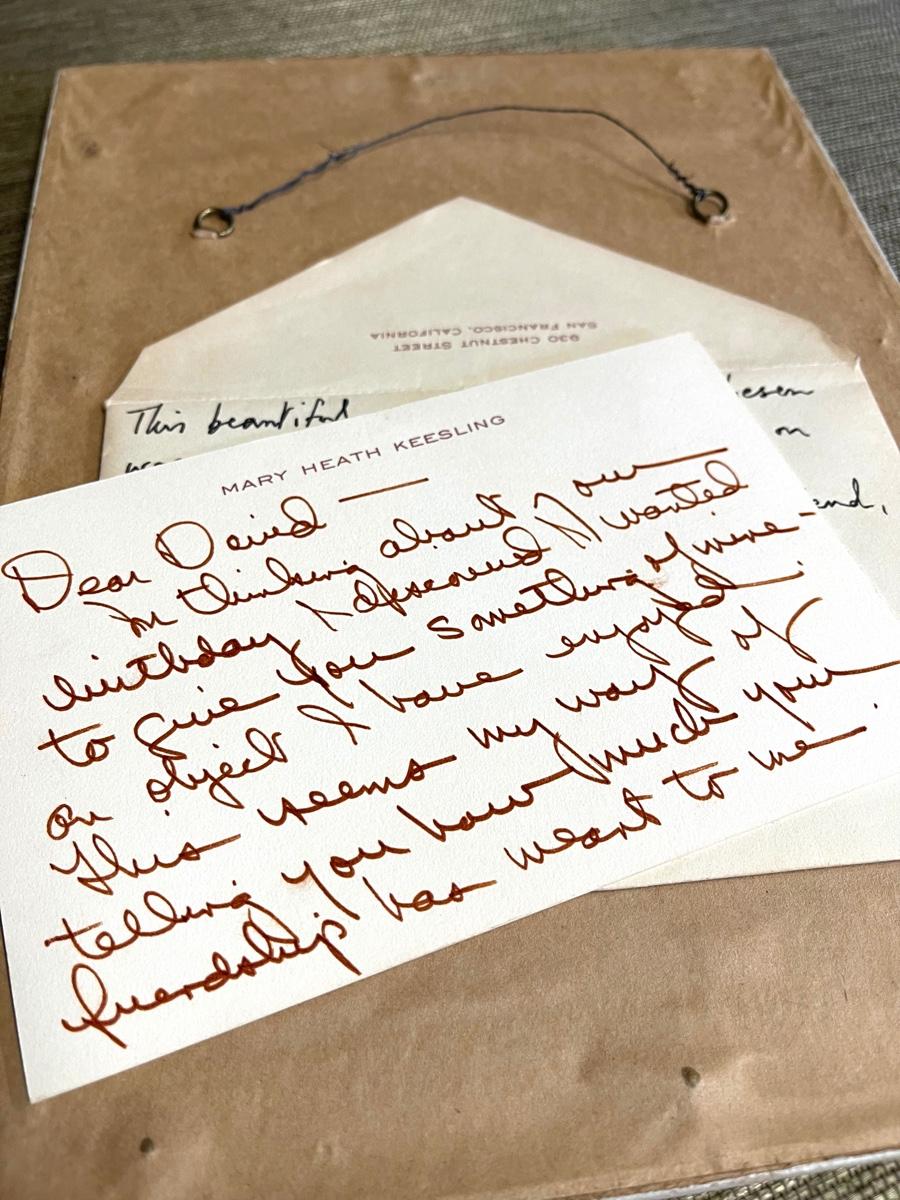 930 CHESTNUT STREET
SAN FRANCISCO, CALIFORNIA
This beautiful
on
end,
MARY HEATH KEESLING
Dear David —
In thinking about your
birthday I wanted
to give you something of mine —
an object I have enjoyed.
This seems my way of
telling you how much your
friendship has meant to me.